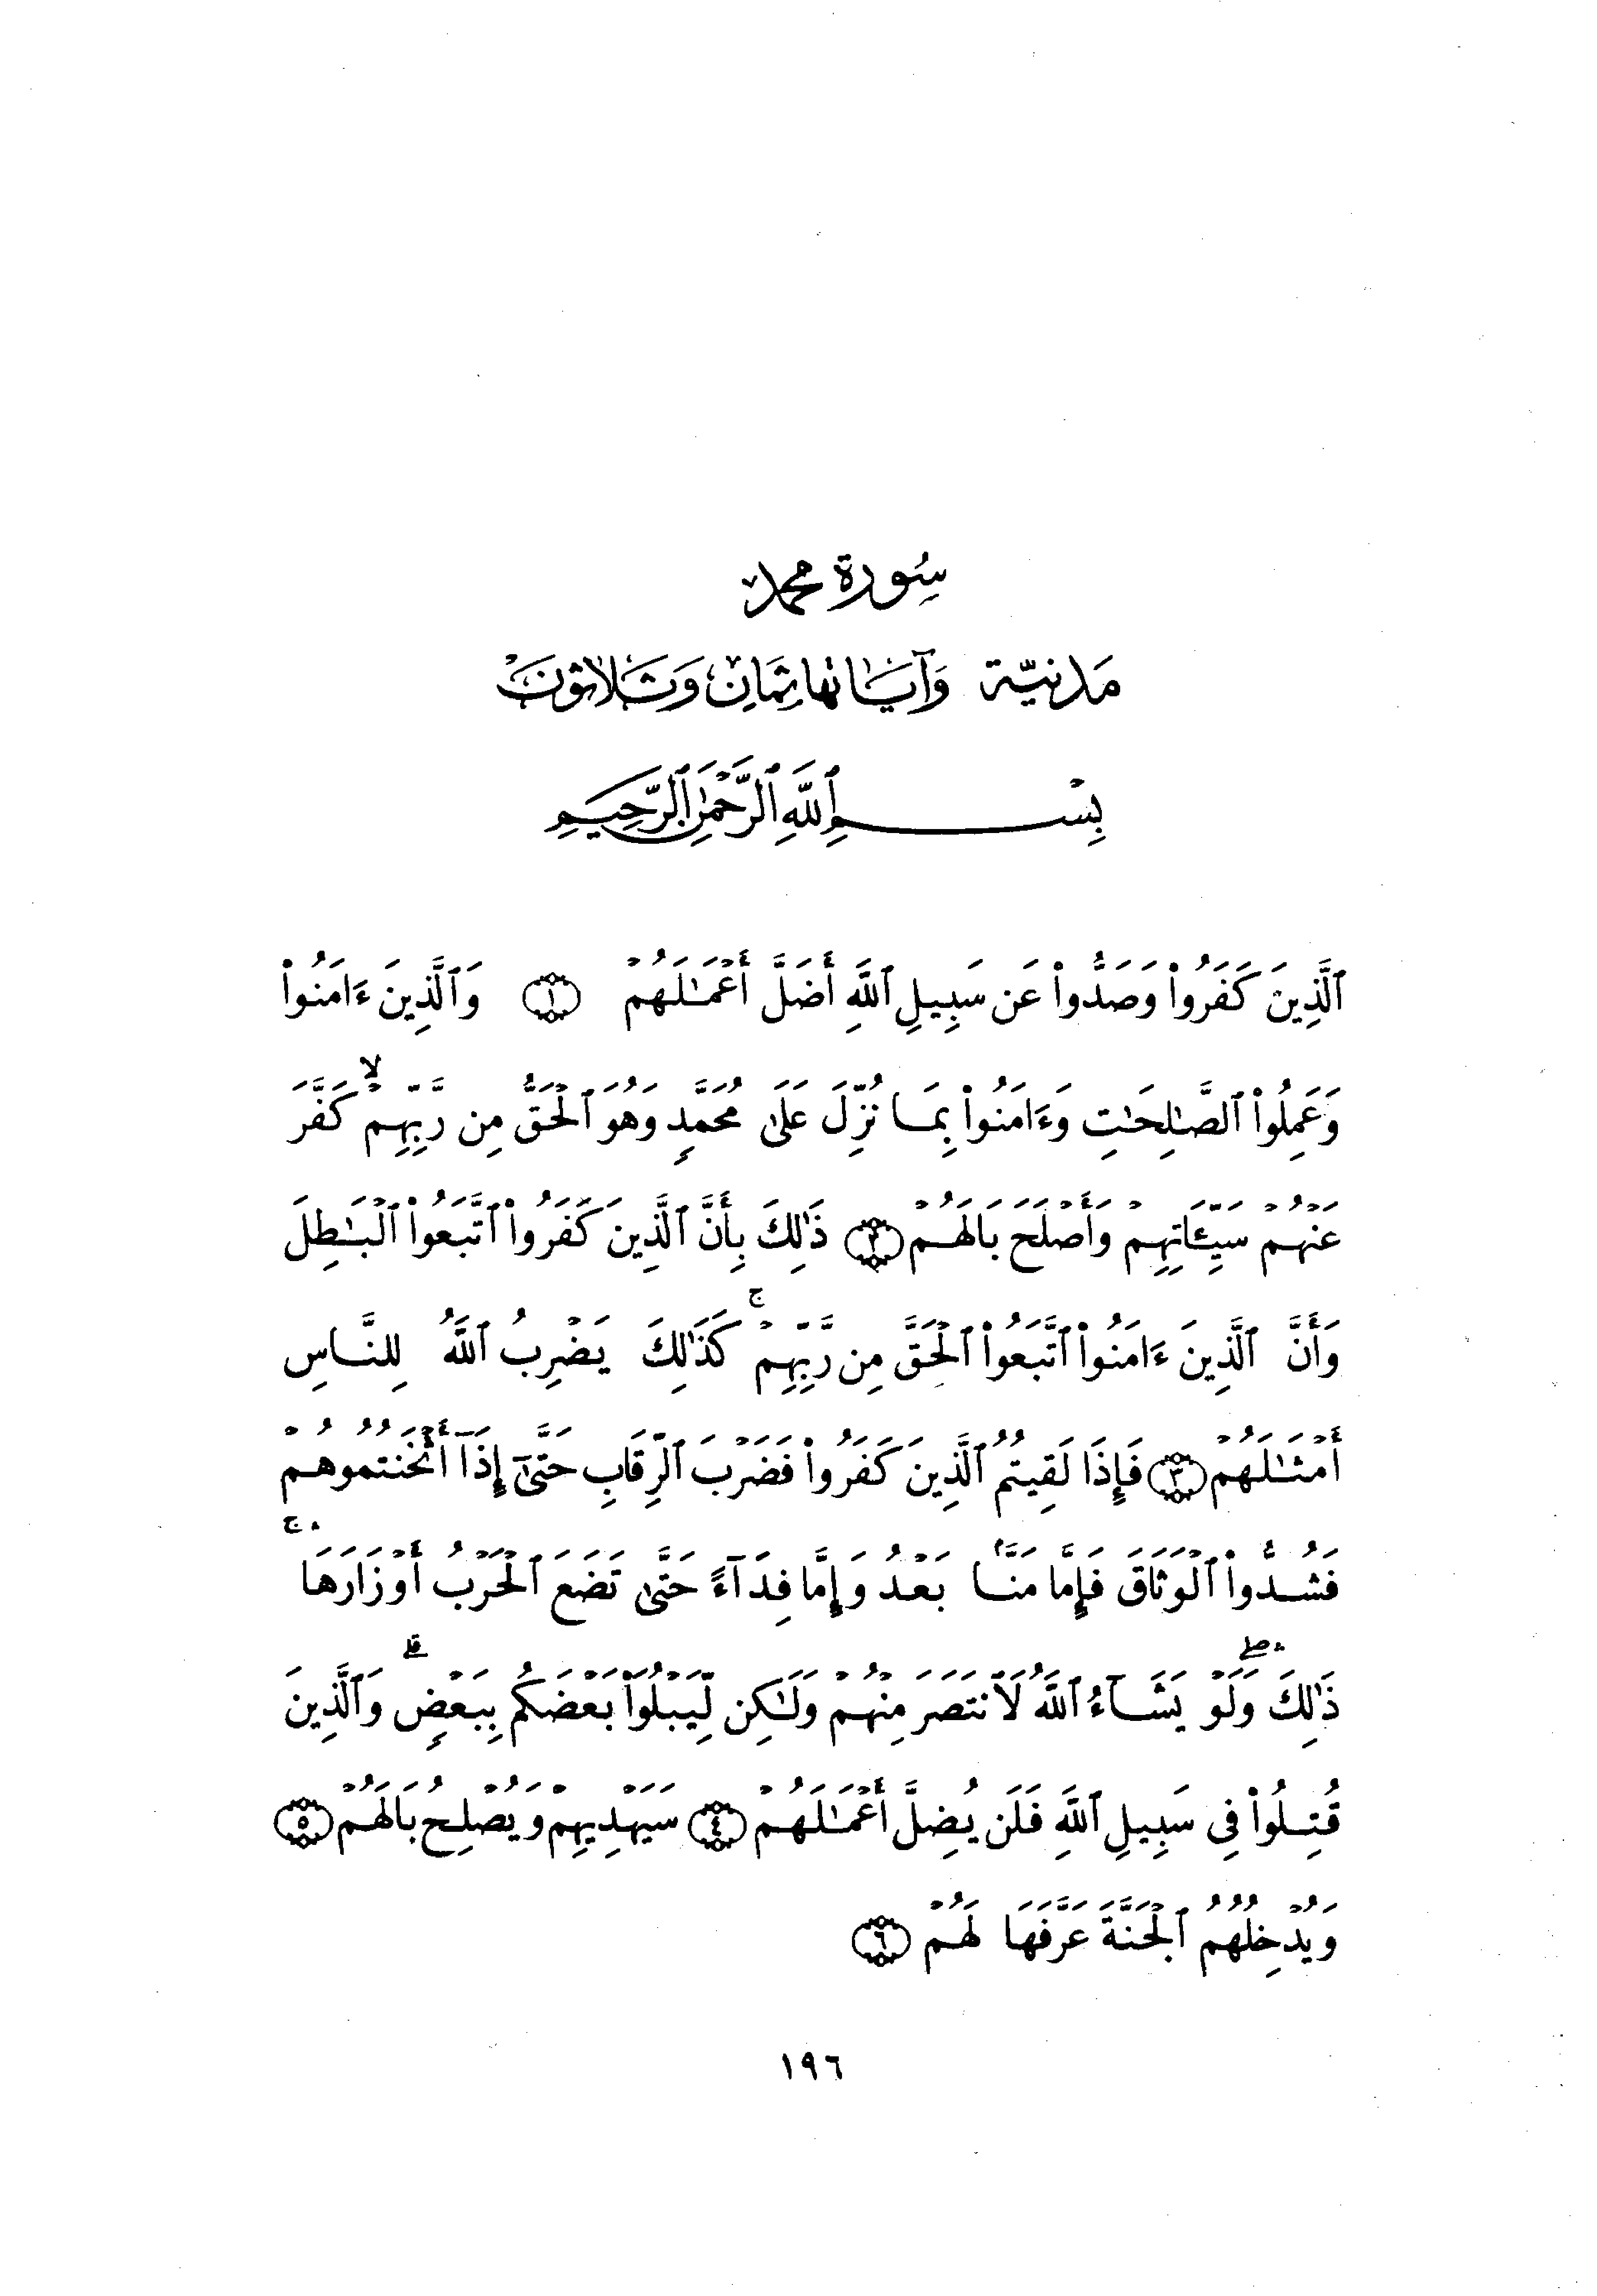 سُورة محمد
مَدنيّة وَآيَاتها ثِمَان وَثَلاثون
بِسْمِ ٱللَّهِ ٱلرَّحْمَٰنِ ٱلرَّحِيمِ
ٱلَّذِينَ كَفَرُوا۟ وَصَدُّوا۟ عَن سَبِيلِ ٱللَّهِ أَضَلَّ أَعْمَـٰلَهُمْ ﴿١﴾ وَٱلَّذِينَ ءَامَنُوا۟
وَعَمِلُوا۟ ٱلصَّـٰلِحَـٰتِ وَءَامَنُوا۟ بِمَا نُزِّلَ عَلَىٰ مُحَمَّدٍ وَهُوَ ٱلْحَقُّ مِن رَّبِّهِمْ ۙ كَفَّرَ
عَنْهُمْ سَيِّـَٔاتِهِمْ وَأَصْلَحَ بَالَهُمْ ﴿٢﴾ ذَٰلِكَ بِأَنَّ ٱلَّذِينَ كَفَرُوا۟ ٱتَّبَعُوا۟ ٱلْبَـٰطِلَ
وَأَنَّ ٱلَّذِينَ ءَامَنُوا۟ ٱتَّبَعُوا۟ ٱلْحَقَّ مِن رَّبِّهِمْ ۚ كَذَٰلِكَ يَضْرِبُ ٱللَّهُ لِلنَّاسِ
أَمْثَـٰلَهُمْ ﴿٣﴾ فَإِذَا لَقِيتُمُ ٱلَّذِينَ كَفَرُوا۟ فَضَرْبَ ٱلرِّقَابِ حَتَّىٰٓ إِذَآ أَثْخَنتُمُوهُمْ
فَشُدُّوا۟ ٱلْوَثَاقَ فَإِمَّا مَنًّۢا بَعْدُ وَإِمَّا فِدَآءً حَتَّىٰ تَضَعَ ٱلْحَرْبُ أَوْزَارَهَا ۚ
ذَٰلِكَ ۖ وَلَوْ يَشَآءُ ٱللَّهُ لَٱنتَصَرَ مِنْهُمْ وَلَـٰكِن لِّيَبْلُوَا۟ بَعْضَكُم بِبَعْضٍ ۗ وَٱلَّذِينَ
قُتِلُوا۟ فِى سَبِيلِ ٱللَّهِ فَلَن يُضِلَّ أَعْمَـٰلَهُمْ ﴿٤﴾ سَيَهْدِيهِمْ وَيُصْلِحُ بَالَهُمْ ﴿٥﴾
وَيُدْخِلُهُمُ ٱلْجَنَّةَ عَرَّفَهَا لَهُمْ ﴿٦﴾
١٩٦